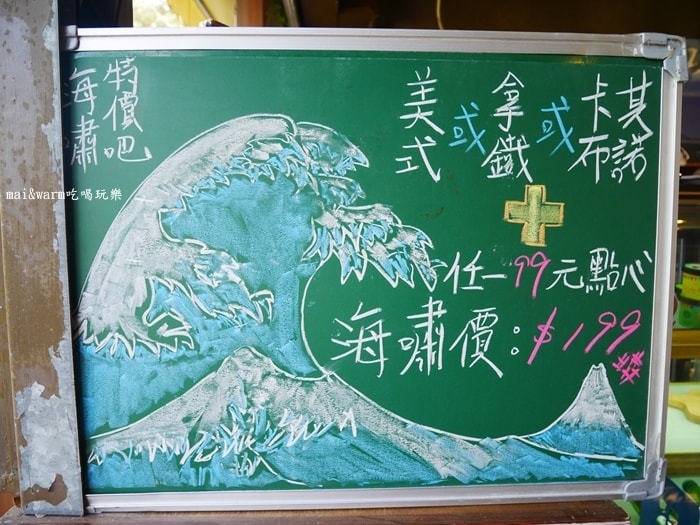 海嘯
特價吧
美式
或
拿鐵
或
卡布
其諾
任一99元點心
海嘯價：$199
mai&warm吃喝玩樂